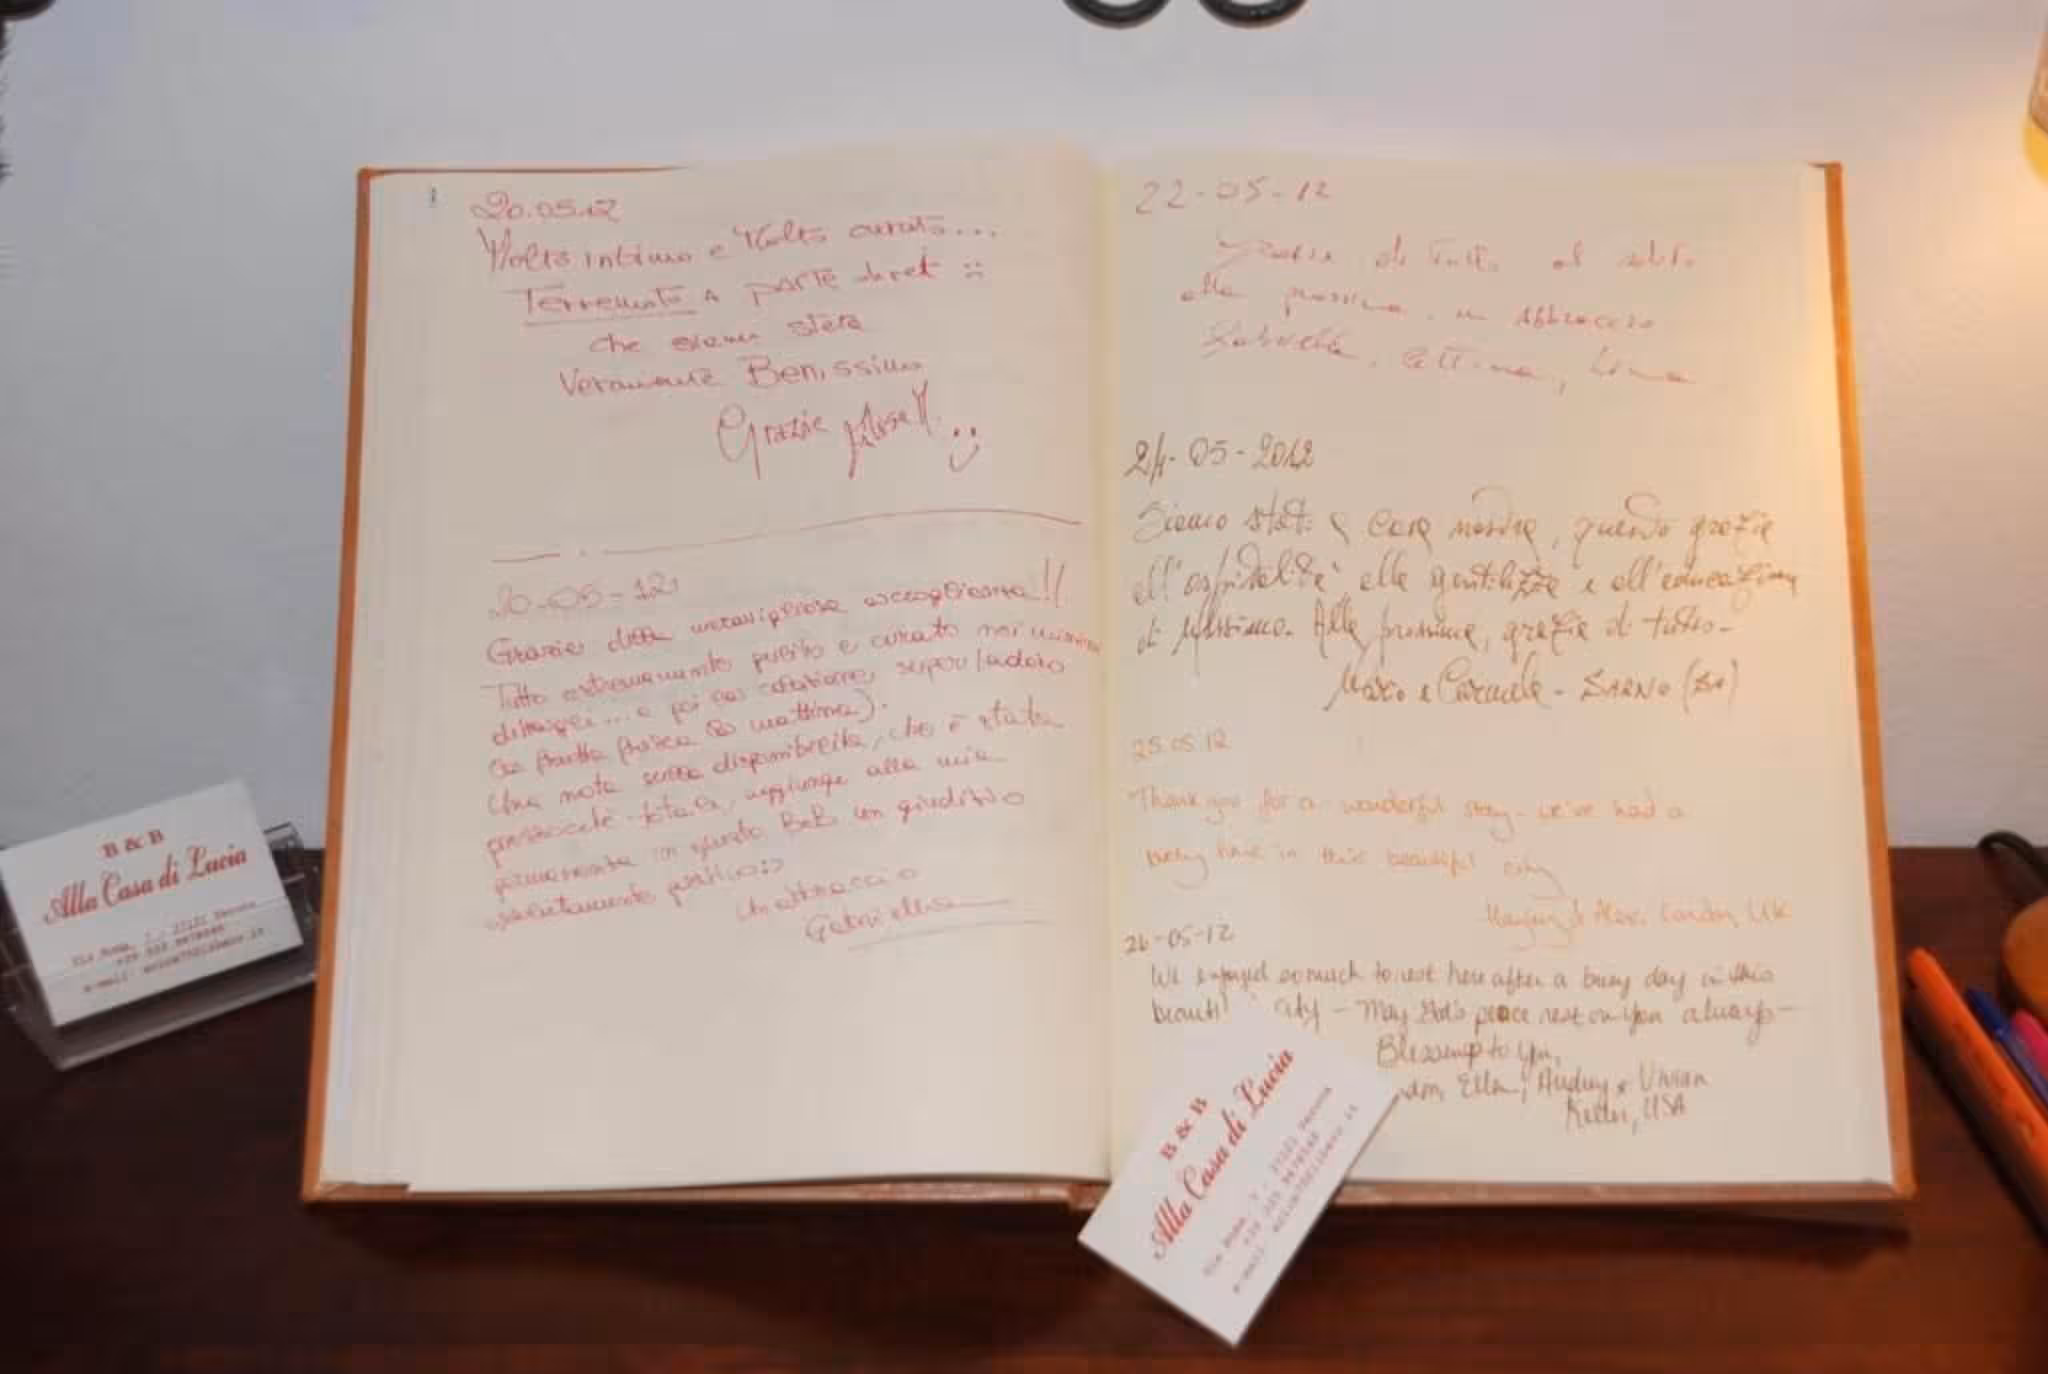 20.05.12
Molto intimo e Molto curato...
Terremoto a parte direi ::
che siamo stati
Veramente Benissimo
Grazie
20-05-12
Grazie della meravigliosa accoglienza!!
Tutto estremamente pulito e curato nei minimi
dettagli... e poi la colazione, super (adoro
la frutta fresca la mattina).
Una nota sulla disponibilità, che è stata
totale, aggiunge alla mia
permanenza in questo B&B un giudizio
assolutamente positivo
Un abbraccio
Gabriella
22-05-12
Grazie di tutto al solito
alla prossima. un abbraccio
24-05-2012
Siamo stati a casa nostra, questo grazie
all'ospitalità alla gentilezza e all'educazione
di Massimo. Alla prossima, grazie di tutto-
Marco e Carmela - SARNO (SA)
25.05.12
Thank you for a wonderful stay - we've had a
lovely time in this beautiful city
& Alex. London, UK
26-05-12
We enjoyed so much to rest here after a busy day in this
beauti city - May God's peace rest on you always-
Blessings to you,
Ella, Audrey & Vivian
Keller, USA
B & B
Alla Casa di Lucia
B & B
Alla Casa di Lucia